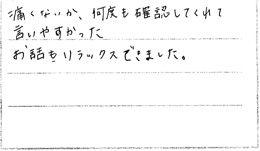 痛くないか、何度も確認してくれて
言いやすかった
お話もリラックスできました。